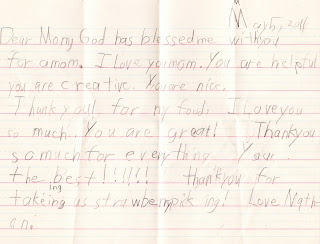 May 5, 2011
Dear Mom, God has blessed me with you
for a mom. I love you mom. You are helpful
you are creative. You are nice.
Thank you! for my food. I Love you
so much. You are great! Thank you
so much for everything. Your
the best!!!!!! thank you for
takeing us strawberry picking! Love Nath-
an.